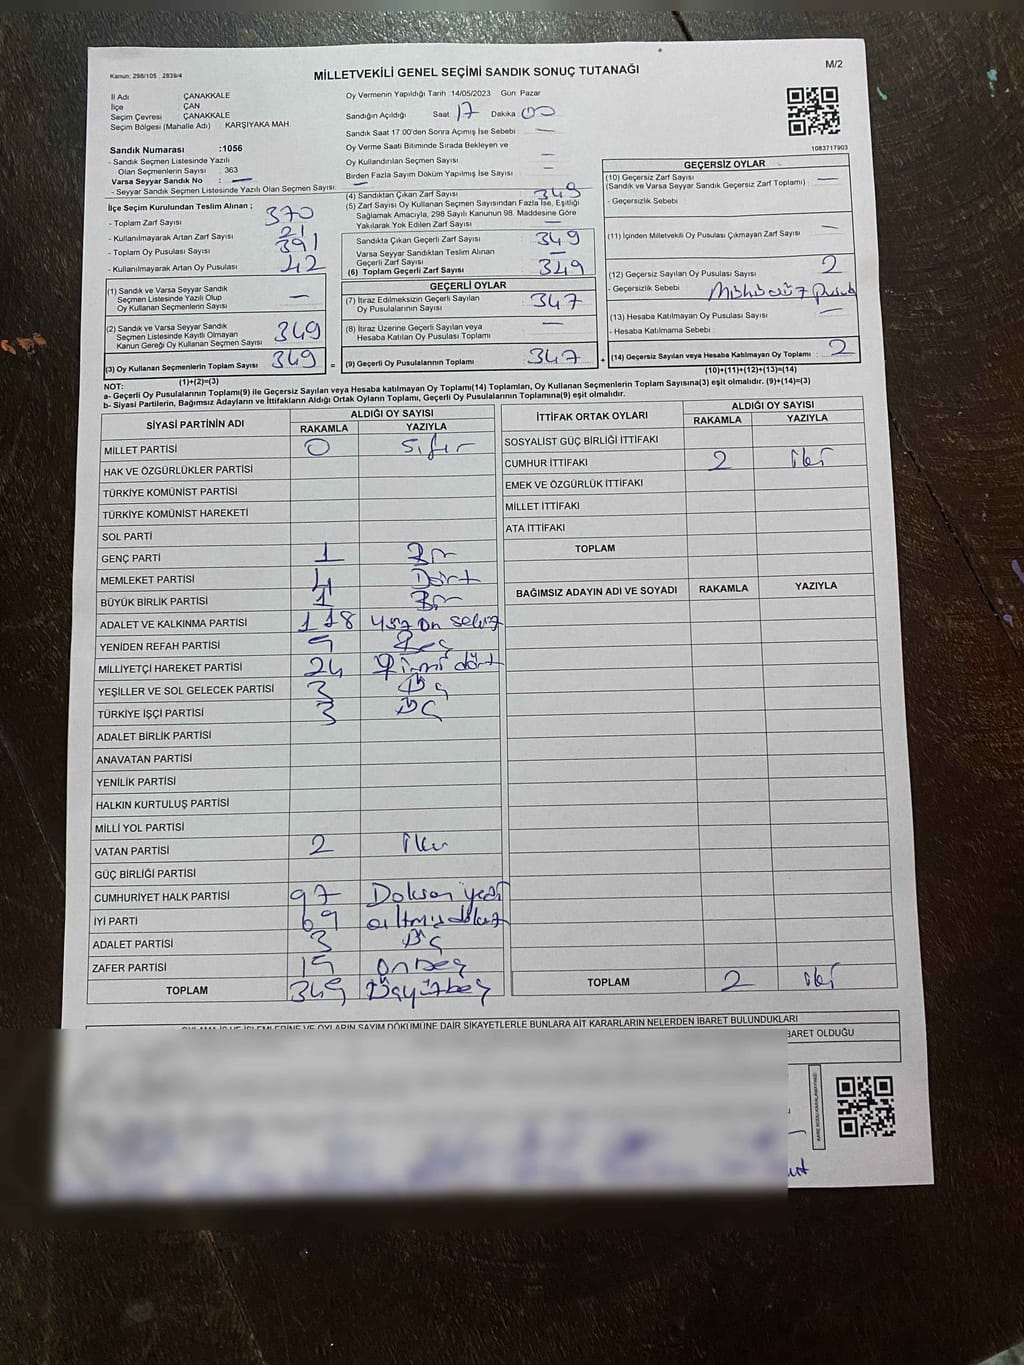 Kanun: 298/105 , 2839/4
MİLLETVEKİLİ GENEL SEÇİMİ SANDIK SONUÇ TUTANAĞI
M/2
İl Adı ÇANAKKALE
İlçe ÇAN
Seçim Çevresi ÇANAKKALE
Seçim Bölgesi (Mahalle Adı) KARŞIYAKA MAH.
Sandık Numarası :1056
- Sandık Seçmen Listesinde Yazılı
Olan Seçmenlerin Sayısı : 363
Varsa Seyyar Sandık No : —
- Seyyar Sandık Seçmen Listesinde Yazılı Olan Seçmen Sayısı:
Oy Vermenin Yapıldığı Tarih :14/05/2023 Gün: Pazar
Sandığın Açıldığı Saat 17 Dakika 00
Sandık Saat 17.00'den Sonra Açımış İse Sebebi : —
Oy Verme Saati Bitiminde Sırada Bekleyen ve
Oy Kullandırılan Seçmen Sayısı : —
Birden Fazla Sayım Döküm Yapılmış İse Sayısı : —
1083717903
İlçe Seçim Kurulundan Teslim Alınan ;
- Toplam Zarf Sayısı 370
- Kullanılmayarak Artan Zarf Sayısı 21
- Toplam Oy Pusulası Sayısı 391
- Kullanılmayarak Artan Oy Pusulası 42
(1) Sandık ve Varsa Seyyar Sandık
Seçmen Listesinde Yazılı Olup
Oy Kullanan Seçmenlerin Sayısı —
(2) Sandık ve Varsa Seyyar Sandık
Seçmen Listesinde Kayıtlı Olmayan
Kanun Gereği Oy Kullanan Seçmen Sayısı 349
(3) Oy Kullanan Seçmenlerin Toplam Sayısı 349
(1)+(2)=(3)
(4) Sandıktan Çıkan Zarf Sayısı 349
(5) Zarf Sayısı Oy Kullanan Seçmen Sayısından Fazla İse, Eşitliği
Sağlamak Amacıyla, 298 Sayılı Kanunun 98. Maddesine Göre
Yakılarak Yok Edilen Zarf Sayısı : —
Sandıkta Çıkan Geçerli Zarf Sayısı 349
Varsa Seyyar Sandıktan Teslim Alınan
Geçerli Zarf Sayısı —
(6) Toplam Geçerli Zarf Sayısı 349
GEÇERLİ OYLAR
(7) İtiraz Edilmeksizin Geçerli Sayılan
Oy Pusulalarının Sayısı : 347
(8) İtiraz Üzerine Geçerli Sayılan veya
Hesaba Katılan Oy Pusulaları Toplamı —
= (9) Geçerli Oy Pusulalarının Toplamı 347
GEÇERSİZ OYLAR
(10) Geçersiz Zarf Sayısı
(Sandık ve Varsa Seyyar Sandık Geçersiz Zarf Toplamı) : —
- Geçersizlik Sebebi
(11) İçinden Milletvekili Oy Pusulası Çıkmayan Zarf Sayısı —
(12) Geçersiz Sayılan Oy Pusulası Sayısı 2
- Geçersizlik Sebebi :
(13) Hesaba Katılmayan Oy Pusulası Sayısı —
- Hesaba Katılmama Sebebi :
+ (14) Geçersiz Sayılan veya Hesaba Katılmayan Oy Toplamı : 2
(10)+(11)+(12)+(13)=(14)
NOT:
a- Geçerli Oy Pusulalarının Toplamı(9) ile Geçersiz Sayılan veya Hesaba katılmayan Oy Toplamı(14) Toplamları, Oy Kullanan Seçmenlerin Toplam Sayısına(3) eşit olmalıdır. (9)+(14)=(3)
b- Siyasi Partilerin, Bağımsız Adayların ve İttifakların Aldığı Oyların Toplamı, Geçerli Oy Pusulalarının Toplamına(9) eşit olmalıdır.
SİYASİ PARTİNİN ADI ALDIĞI OY SAYISI
RAKAMLA YAZIYLA
MİLLET PARTİSİ 0 Sıfır
HAK VE ÖZGÜRLÜKLER PARTİSİ
TÜRKİYE KOMÜNİST PARTİSİ
TÜRKİYE KOMÜNİST HAREKETİ
SOL PARTİ
GENÇ PARTİ 1 Bir
MEMLEKET PARTİSİ 4 Dört
BÜYÜK BİRLİK PARTİSİ 1 Bir
ADALET VE KALKINMA PARTİSİ 118 Yüz on sekiz
YENİDEN REFAH PARTİSİ 5 Beş
MİLLİYETÇİ HAREKET PARTİSİ 24 Yirmi dört
YEŞİLLER VE SOL GELECEK PARTİSİ 3 Üç
TÜRKİYE İŞÇİ PARTİSİ 3 Üç
ADALET BİRLİK PARTİSİ
ANAVATAN PARTİSİ
YENİLİK PARTİSİ
HALKIN KURTULUŞ PARTİSİ
MİLLİ YOL PARTİSİ
VATAN PARTİSİ 2 İki
GÜÇ BİRLİĞİ PARTİSİ
CUMHURİYET HALK PARTİSİ 97 Doksan yedi
İYİ PARTİ 69 altmış dokuz
ADALET PARTİSİ 3 Üç
ZAFER PARTİSİ 15 Onbeş
TOPLAM 345 Üçyüz beş
İTTİFAK ORTAK OYLARI ALDIĞI OY SAYISI
RAKAMLA YAZIYLA
SOSYALİST GÜÇ BİRLİĞİ İTTİFAKI
CUMHUR İTTİFAKI 2 iki
EMEK VE ÖZGÜRLÜK İTTİFAKI
MİLLET İTTİFAKI
ATA İTTİFAKI
TOPLAM
BAĞIMSIZ ADAYIN ADI VE SOYADI RAKAMLA YAZIYLA
TOPLAM 2 iki
OYLAMA İŞ VE İŞLEMLERİNE VE OYLARIN SAYIM DÖKÜMÜNE DAİR ŞİKAYETLERLE BUNLARA AİT KARARLARIN NELERDEN İBARET BULUNDUKLARI
BARET OLDUĞU
KARE KODU KARALAMAYINIZ!